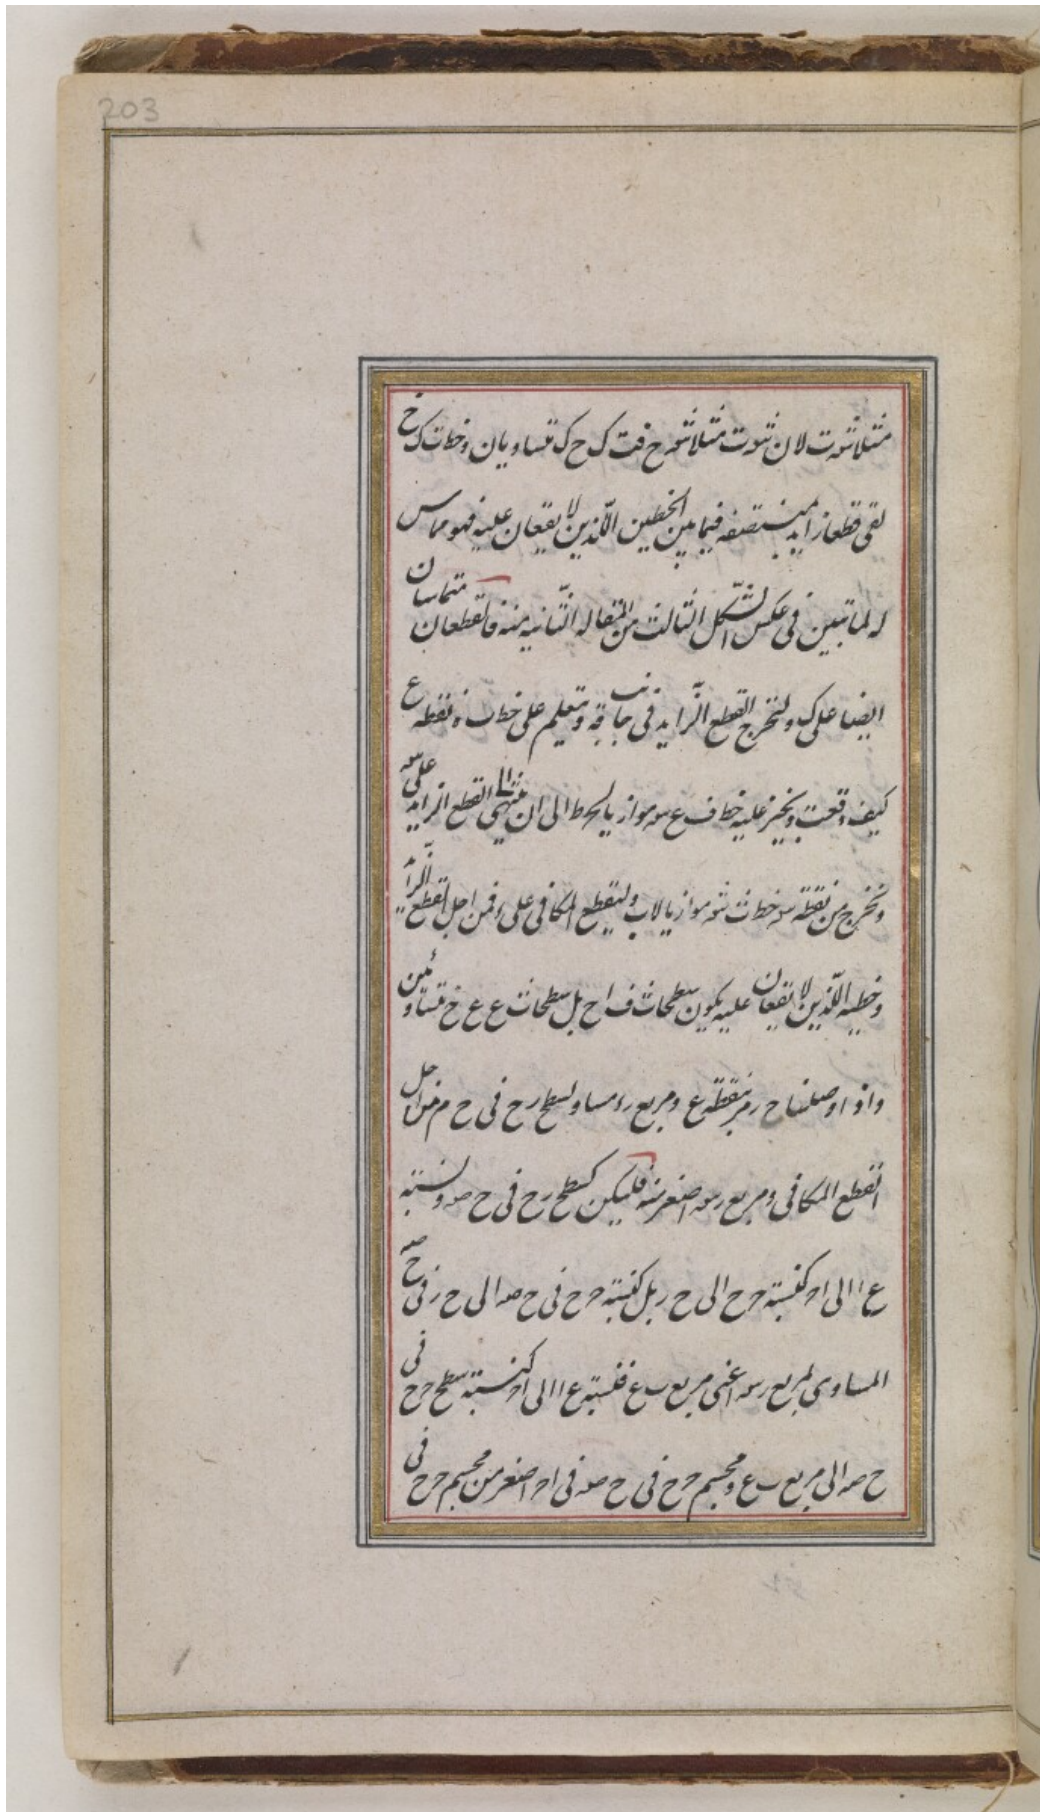 203
مثلا شه ت لان شه ت مثلا شه خ فت ك خ ك متساويان وخط ت ك خ
لقى قطعا زايد بمنتصفه فيما بين الخطين اللذين لا يقعان عليه فهو مماس
له لما تبين فى عكس الشكل الثالث من المقاله الثانيه منه فالقطعان متماسان
ايضا على ك ولنخرج القطع الزايد فى جانب وتعلم على خط نقطه ع
كيف وقعت ونجيز عليه خط ف ع سه موازيا لخط الى ان ينتهى الى القطع الزايد على سه
ونخرج من نقطة سه خط ث شه موازيا لاب وليقطع المكافى على فمن اجل القطع الزايد
وخطيه اللذين لا يقعان عليه يكون سطحا ث ف اح بل سطحا ث ع ع خ متساويين
واذا وصلنا ح ر مر بنقطة ع ومربع ر مساو لسطح ر ح فى ح م من اجل
القطع المكافى ومربع ر سه اصغر منه فليكن كسطح ر ح فى ح صه ونسبة
ع ا الى اح كنسبة ح ح الى ح ر بل كنسبة ح ح فى ح صه الى ح ر فى ح صه
المساوى لمربع ر سه اعنى مربع ب ع فنسبة ع ا الى اح كنسبة سطح ح ح فى
ح صه الى مربع ب ع ومجسم ح ح فى ح صه فى اح اصغر من مجسم ح ح فى